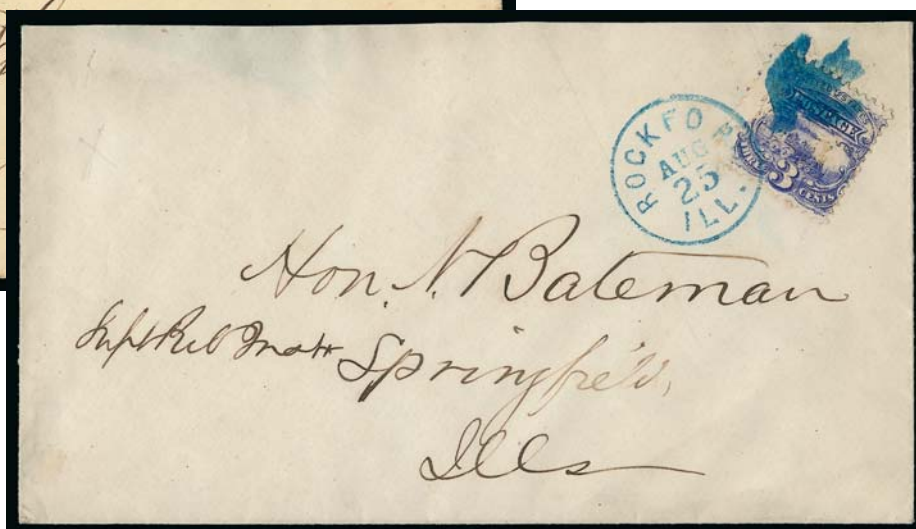 ROCKFO
AUG
25
ILL.
POSTAGE
3
CENTS
Hon. N. Bateman
Supt Pub Instr Springfield,
Ills